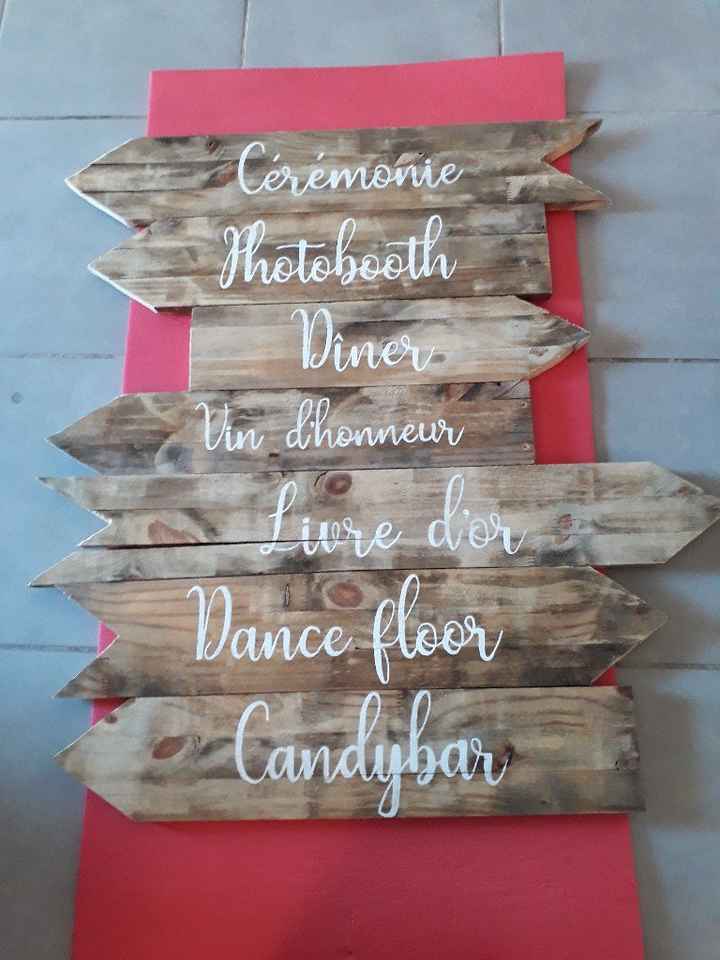 Cérémonie
Photobooth
Dîner
Vin d'honneur
Livre d'or
Dance floor
Candybar